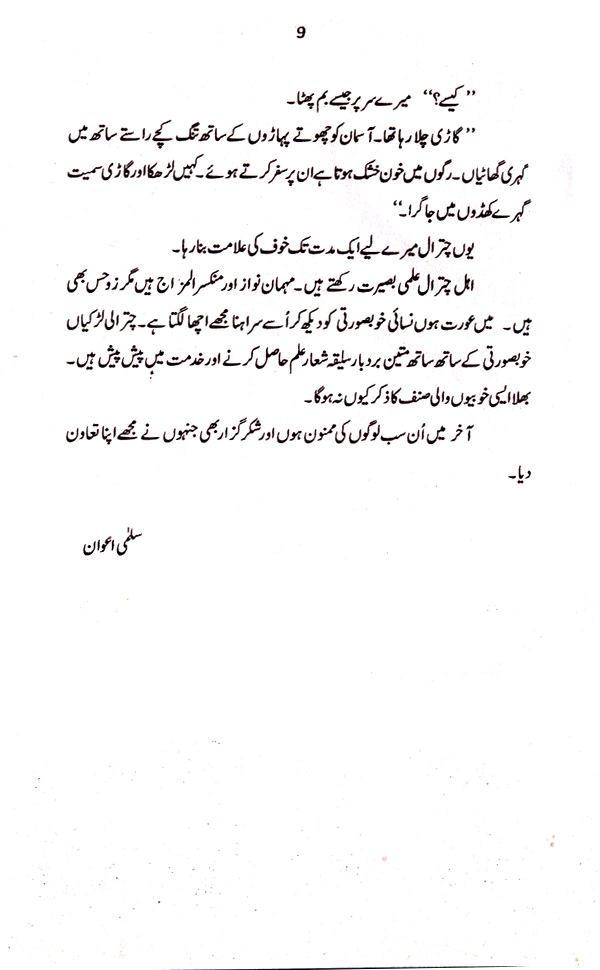 9
”کیسے؟“ میرے سر پر جیسے بم پھٹا۔
”گاڑی چلا رہا تھا۔ آسمان کو چھوتے پہاڑوں کے ساتھ تنگ کچے راستے ساتھ میں
گہری گھاٹیاں۔ رگوں میں خون خشک ہوتا ہے ان پر سفر کرتے ہوئے۔ کہیں لڑھکا اور گاڑی سمیت
گہرے کھڈوں میں جا گرا۔“
یوں چترال میرے لیے ایک مدت تک خوف کی علامت بنا رہا۔
اہل چترال علمی بصیرت رکھتے ہیں۔ مہمان نواز اور منکسر المزاج ہیں مگر زوحس بھی
ہیں۔ میں عورت ہوں نسائی خوبصورتی کو دیکھ کر اُسے سراہنا مجھے اچھا لگتا ہے۔ چترالی لڑکیاں
خوبصورتی کے ساتھ ساتھ متین بردبار سلیقہ شعار علم حاصل کرنے اور خدمت میں پیش پیش ہیں۔
بھلا ایسی خوبیوں والی صنف کا ذکر کیوں نہ ہوگا۔
آخر میں اُن سب لوگوں کی ممنون ہوں اور شکر گزار بھی جنہوں نے مجھے اپنا تعاون
دیا۔
سلمٰی اعوان